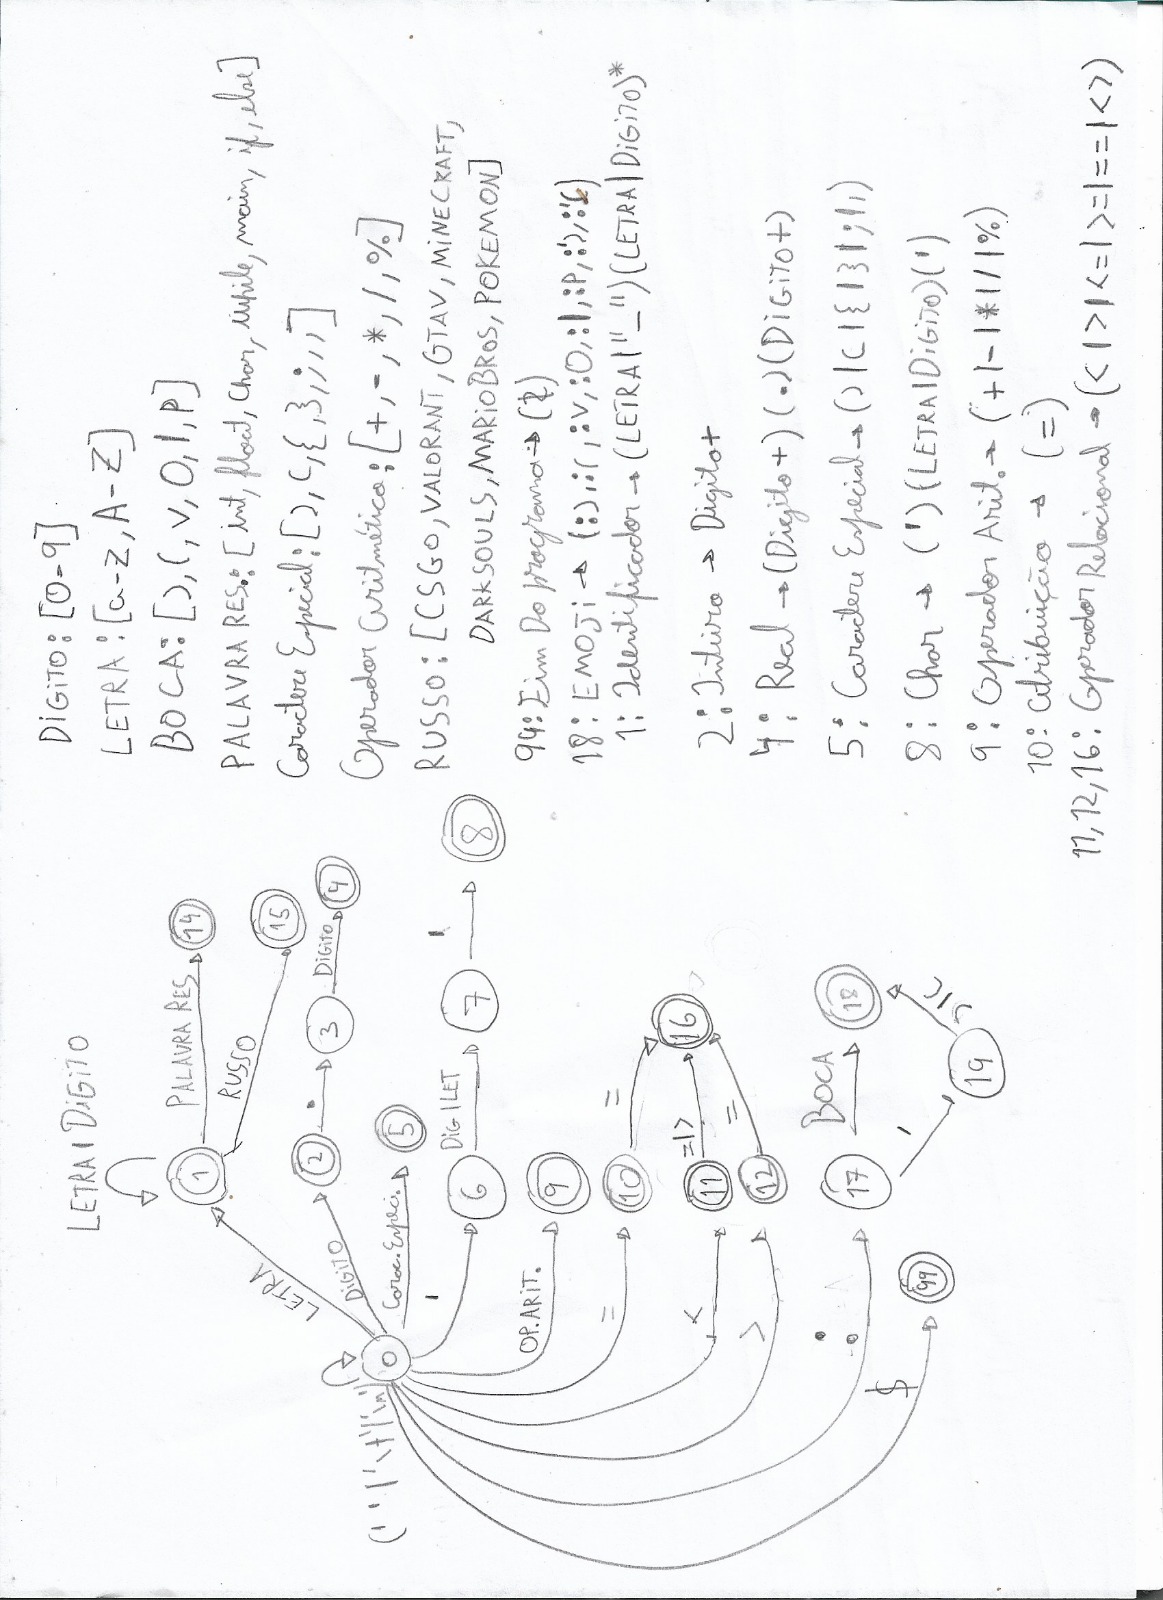 LETRA | DiGiTO
1
PALAVRA RES
14
RUSSO
15
LETRA
DiGiTO
2
.
3
DiGiTO
4
(' ' | '\t' | '\n')
0
Carac. Especi.
5
'
6
DIG | LET
7
'
8
OP. ARiT.
9
=
10
=
<
11
= | >
16
>
12
=
:
17
BOCA
18
'
19
) | (
$
99
DiGiTO: [0-9]
LETRA: [a-z, A-Z]
BOCA: [), (, v, O, |, P]
PALAVRA RES.: [int, float, Char, while, main, if, else]
Caractere Especial: [), (, {, }, ;, ,]
Operador Aritmético: [+, -, *, /, %]
RUSSO: [CSGO, VALORANT, GTAV, MiNECRAFT,
DARKSOULS, MARioBROS, POKEMON]
99: Fim Do programa → ($)
18: EMOJi → (:), :(, :v, :O, :|, :P, :'), :'()
1: Identificador → (LETRA | "_")(LETRA | DiGiTO)*
2: Inteiro → Digito+
4: Real → (Digito+) (.) (DiGiTO+)
5: Caractere Especial → () | ( | { | } | ; | ,)
8: Char → (') (LETRA | DiGiTO) (')
9: Operador Arit. → (+ | - | * | / | %)
10: Atribuição → (=)
11, 12, 16: Operador Relacional → (< | > | <= | >= | == | <>)